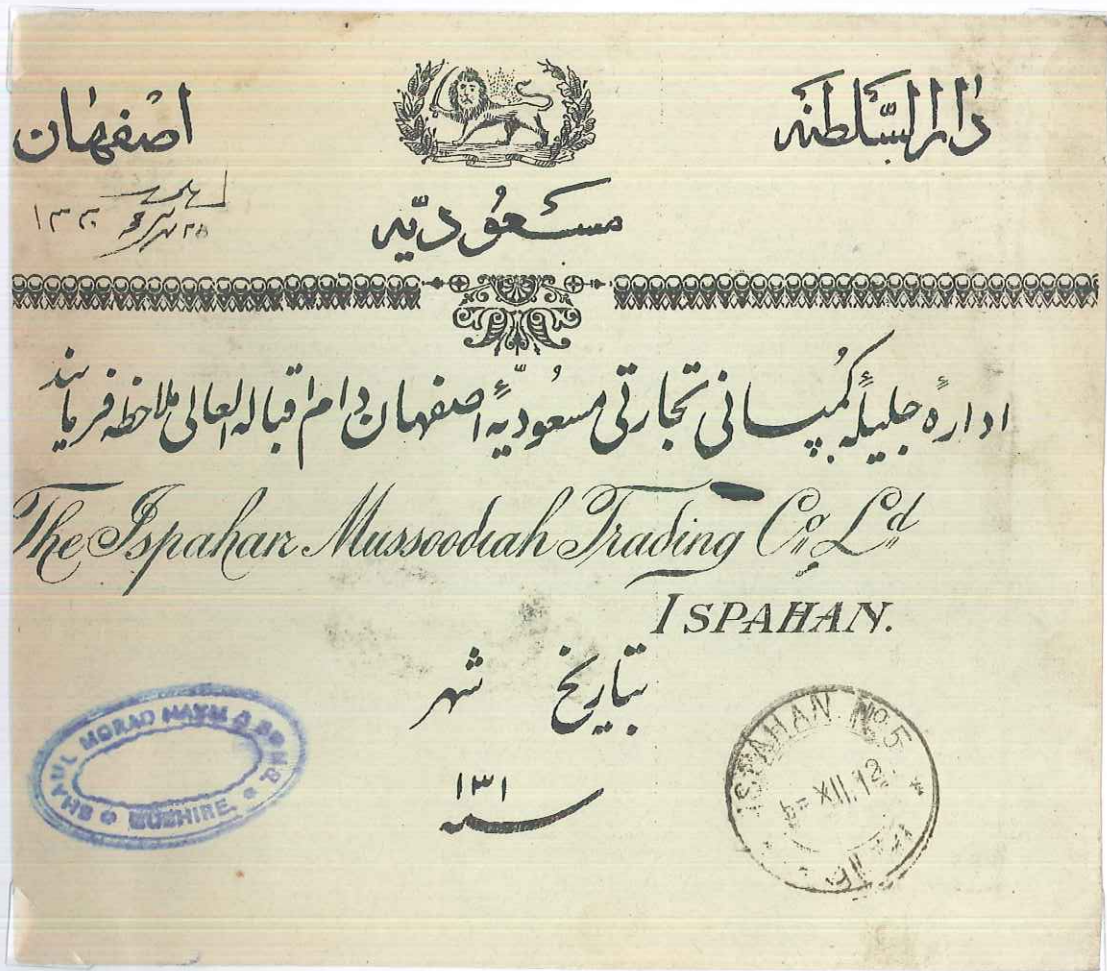 دارالسّلطنه اصفهان
مسعودیّه
۱۳۳۰
ادارهٔ جلیلهٔ کُمپانی تجارتی مسعُودیّهٔ اصفهان دام اقباله العالی ملاحظه فرمایند
The Ispahan Mussoodiah Trading Co. Ld
ISPAHAN.
بتاریخ شهر
سنه ۱۳۱
SHAUL MORAD HAYM & BUSHIRE.
ISPAHAN. No. 5 XII.12